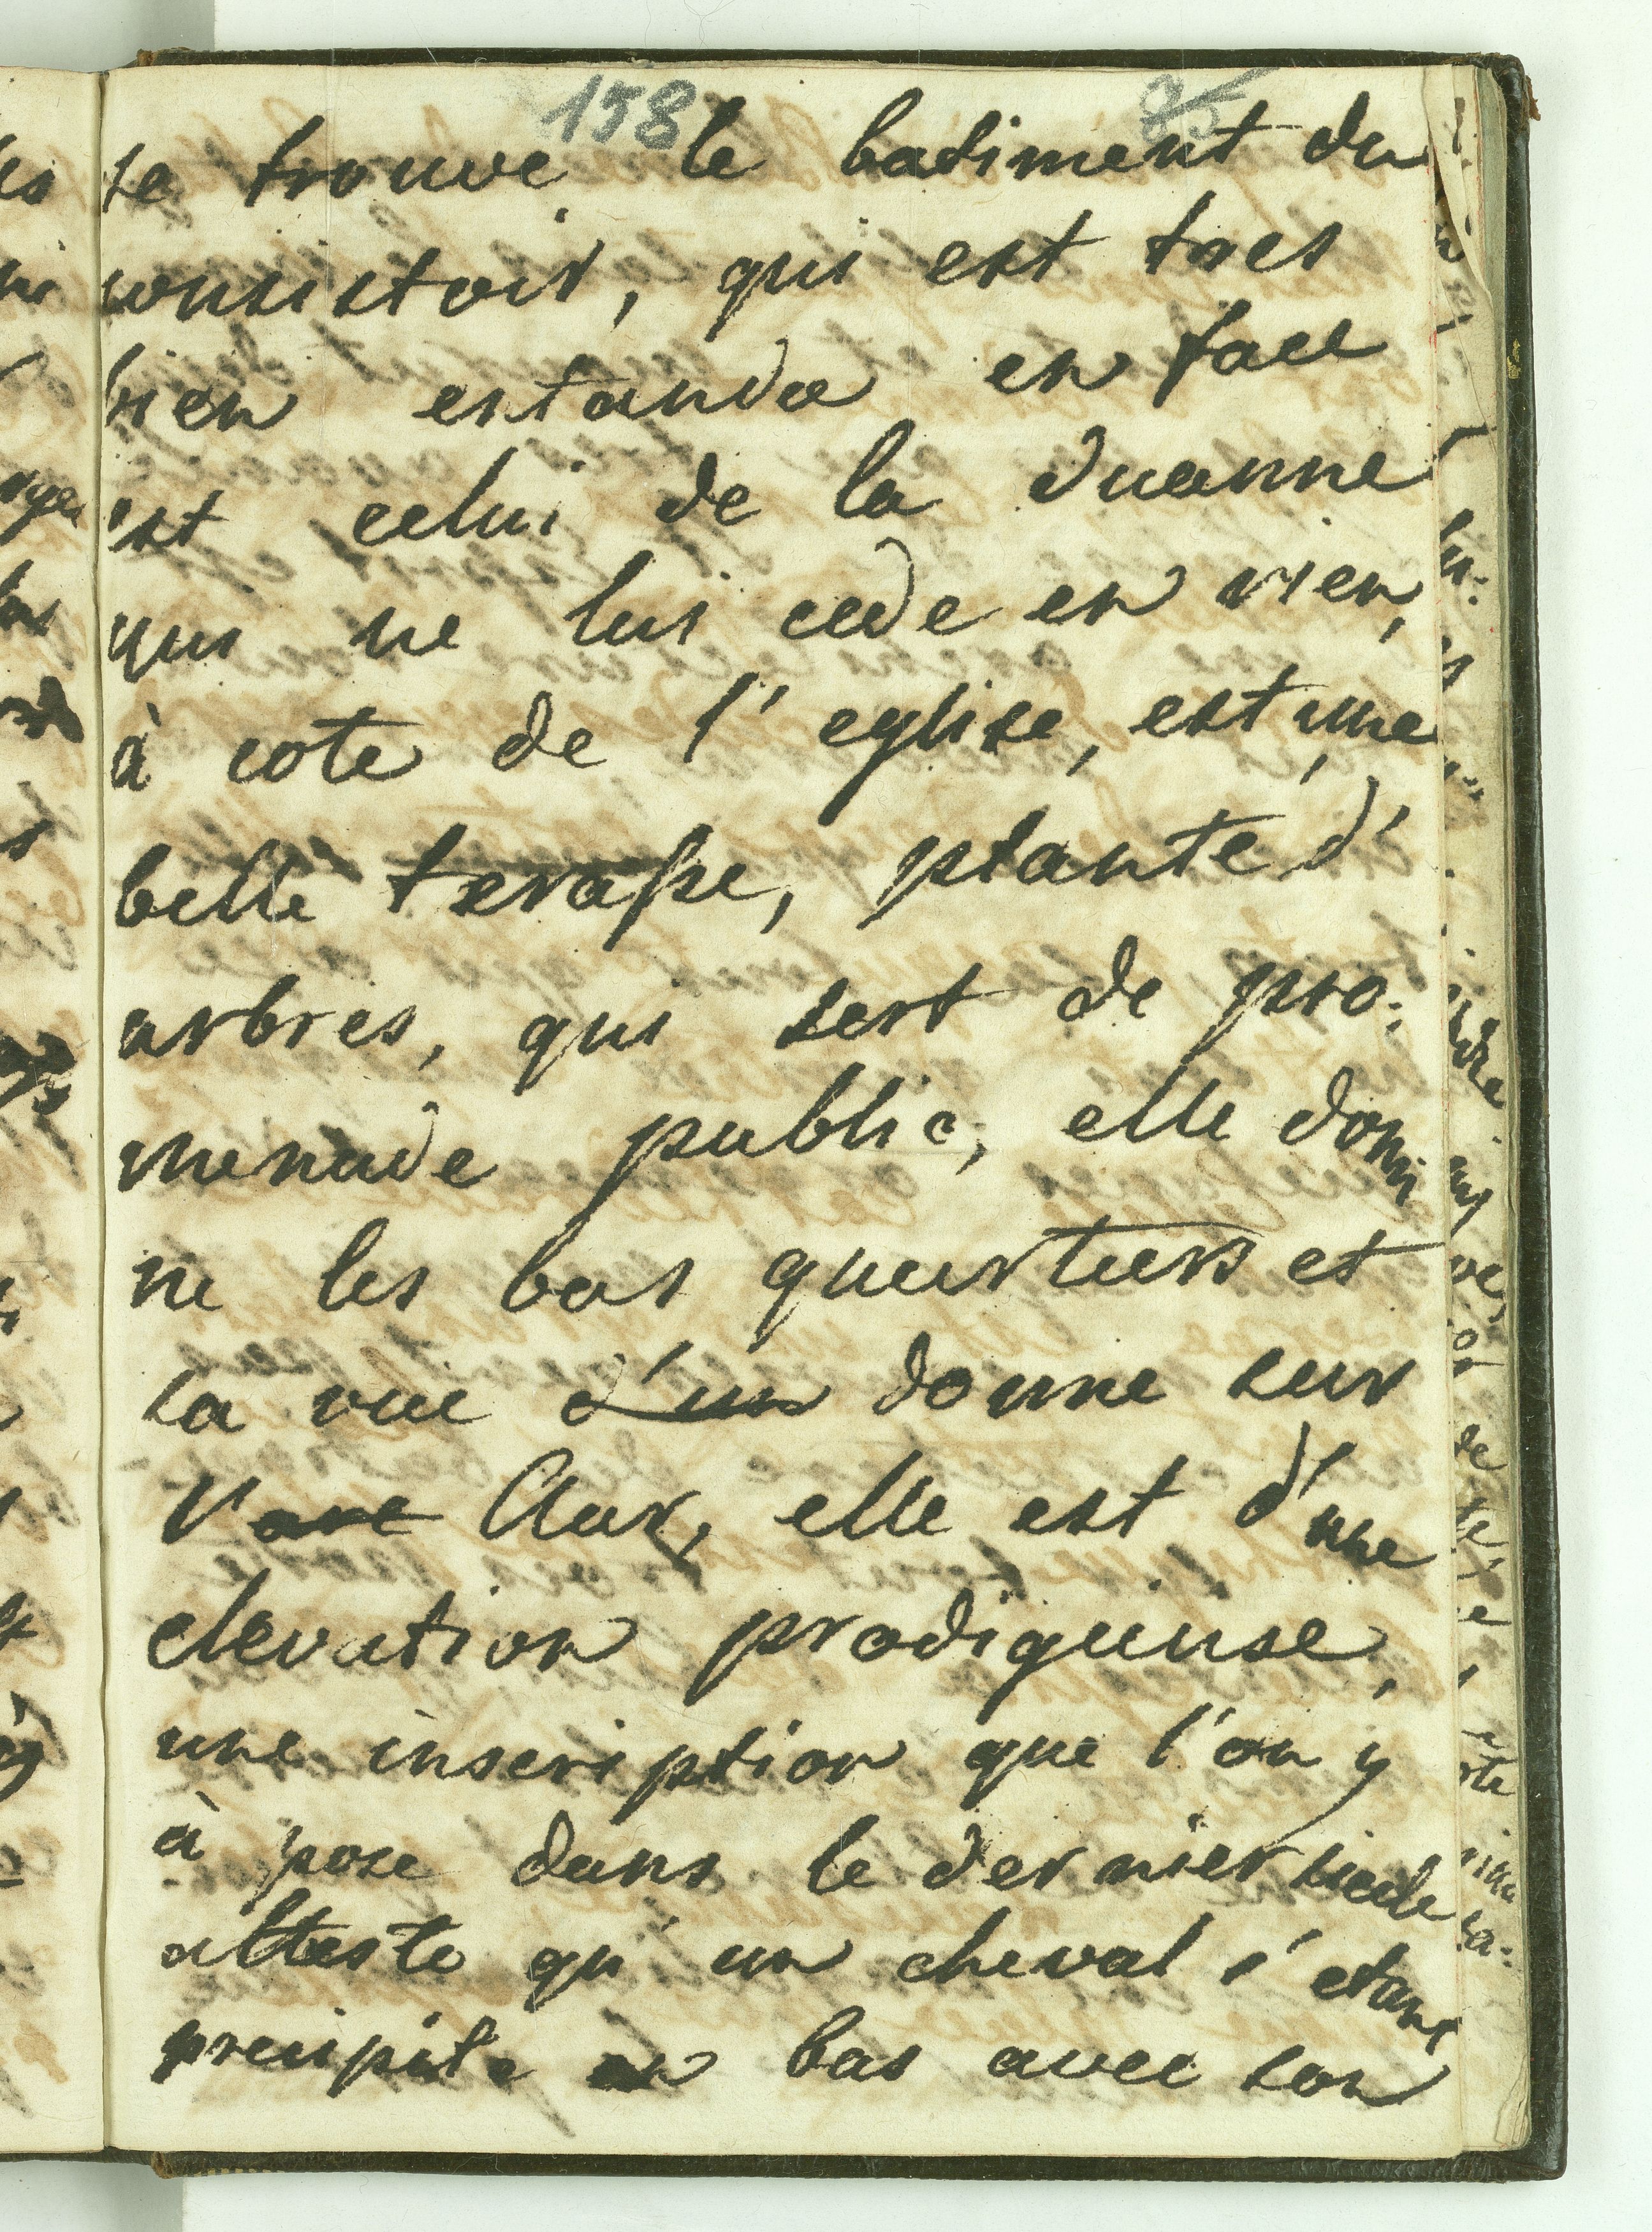 158 85
se trouve le batiment du
consistoir, qui est tres
bien entandu en face
est celui de la duanne
qui ne lui cede en rien,
à cote de l' eglise, est, une
belle terasse, plante d'
arbres, qui sert de pro:
menade public, elle domi
ne les bas quartiers et
sa vue d'un donne sur
l'are l'Aar, elle est d'une
elevation prodigeuse,
une inscription que l'on y
à pose dans le dernier siecle
atteste qu' un cheval s' etant
precipite en bas avec son